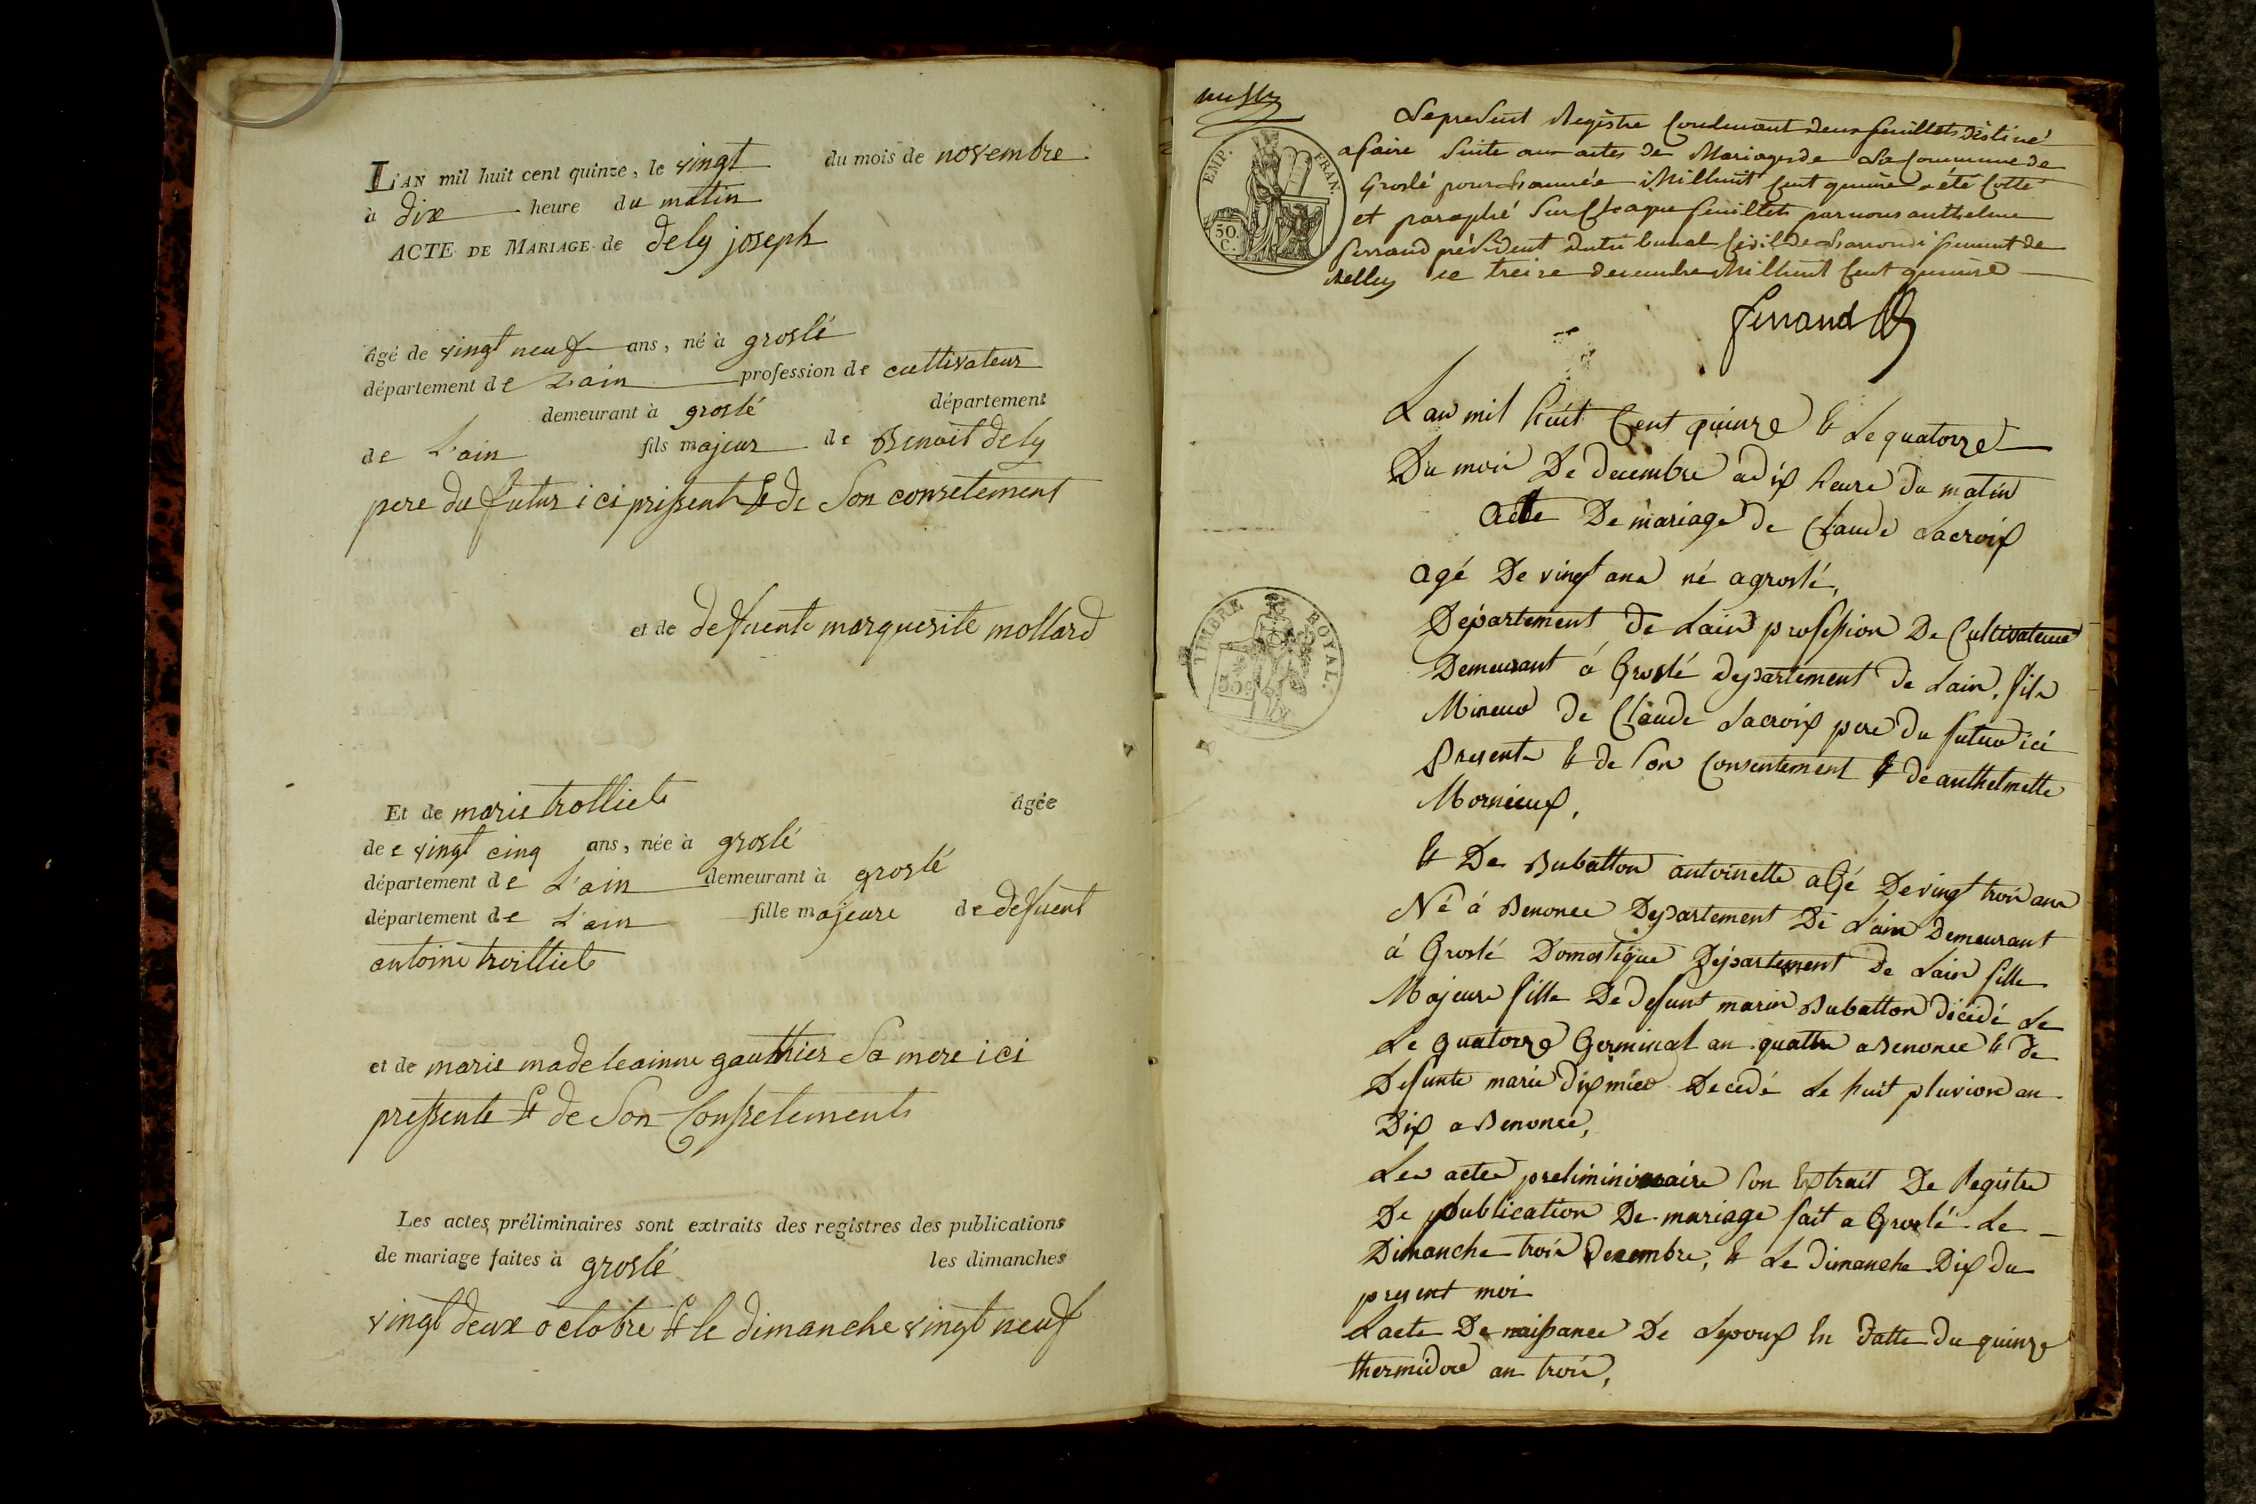 L'AN mil huit cent quinze, le vingt du mois de novembre
à dix heure du matin
ACTE DE MARIAGE de dely joseph
âgé de vingt neuf ans, né à groslé
département de L'ain profession de cultivateur
demeurant à groslé département
de L'ain fils majeur de Benoit dely
pere du futur ici prissent & de Son consetement
et de deffuente marguerite mollard
Et de marie trolliet âgée
de e vingt cinq ans, née à groslé
département de L'ain demeurant à groslé
département de L'ain fille majeure de deffuent
antoine troilliet
et de marie madeleainne gauthier Sa mere ici
pressente & de Son Consetement
Les actes préliminaires sont extraits des registres des publications
de mariage faites à groslé les dimanches
vingt deux octobre & le dimanche vingt neuf
EMP. FRAN.
50. C.
Le present Registre contenant deux feuillets destiné
a faire Suite aux actes de Mariages de La Commune de
Groslé pour L'année Mil huit Cent quinze a été Cotté
et paraphé Sur Chaque feuillets par nous anthelme
ferrand président du tribunal Civil de L'arrondissement de
Belley ce treize decembre Mil huit Cent quinze
ferrand
TIMBRE ROYAL.
Lan mil huit Cent quinze & Le quatorze
Du mois De decembre a dix heure du matin
Acte De mariage de Claude Lacroix
agé De vingt ans né a groslé,
Departement de Lain profession De Cultivateur
Demeurant á Groslé departement de Lain, fils
Mineur de Claude Lacroix pere du futur ici
Present & de Son Consentement & de anthelmette
Mornieux,
& De Bubatton antoinette agé De vingt trois ans
Né á Benonce Departement De Lain Demeurant
á Groslé Domestique Departement De Lain fille
Majeure fille De defunt marin Bubatton décidé Le
Le quatorze Germinal an quattre a Benonce & de
Defunte marie dixmier Decedé Le huit pluviose an
Dix a Benonce,
Les actes preliminiraire Son Extrait De Registre
De publication De mariage fait a Groslé Le
Dimanche trois Decembre, & Le dimanche Dix du
present mois
Lacte De naissance De Lepoux En datte du quinze
thermidor an trois,